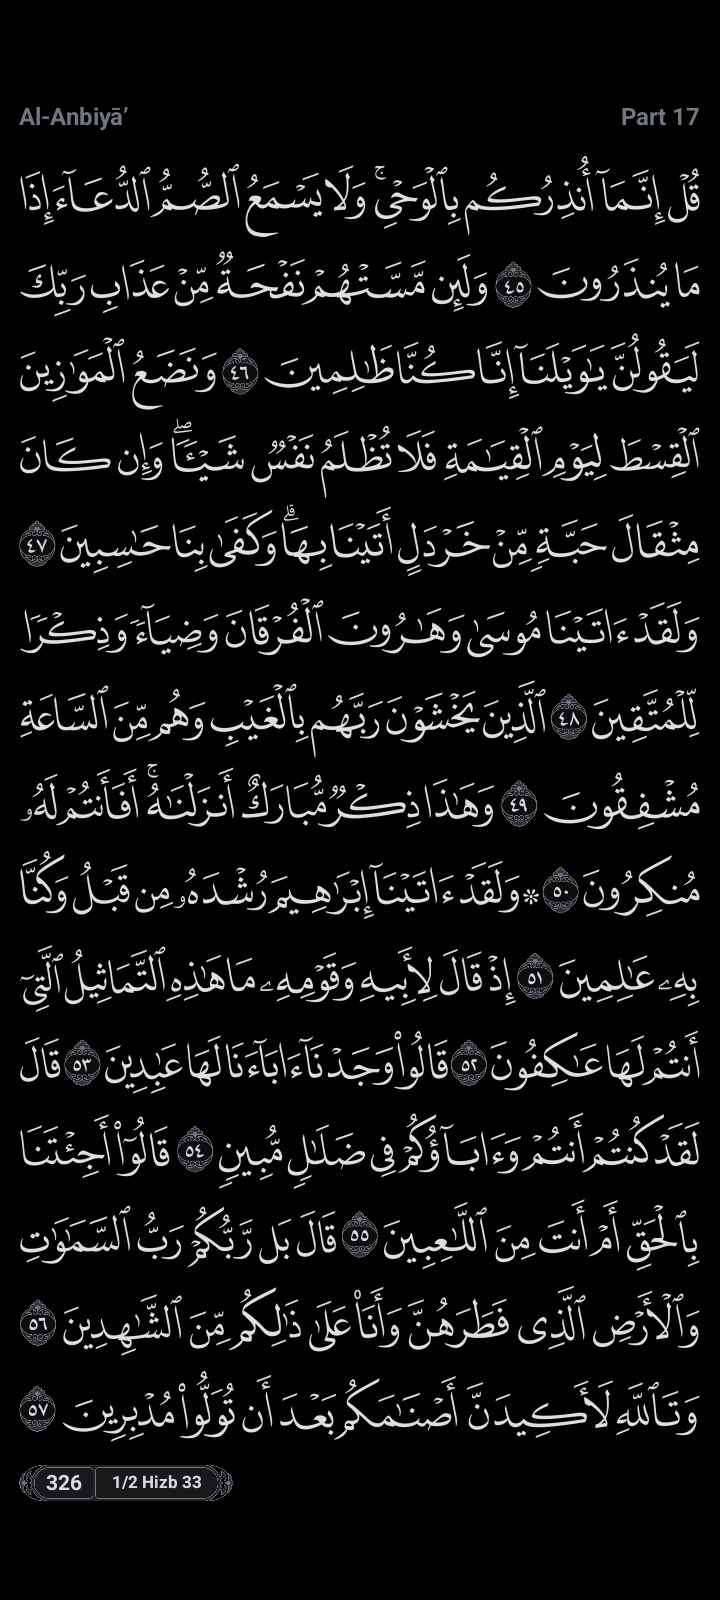 Al-Anbiyā’ Part 17
قُلْ إِنَّمَآ أُنذِرُكُم بِٱلْوَحْىِ ۚ وَلَا يَسْمَعُ ٱلصُّمُّ ٱلدُّعَآءَ إِذَا
مَا يُنذَرُونَ ٤٥ وَلَئِن مَّسَّتْهُمْ نَفْحَةٌ مِّنْ عَذَابِ رَبِّكَ
لَيَقُولُنَّ يَـٰوَيْلَنَآ إِنَّا كُنَّا ظَـٰلِمِينَ ٤٦ وَنَضَعُ ٱلْمَوَٰزِينَ
ٱلْقِسْطَ لِيَوْمِ ٱلْقِيَـٰمَةِ فَلَا تُظْلَمُ نَفْسٌ شَيْـًٔا ۖ وَإِن كَانَ
مِثْقَالَ حَبَّةٍ مِّنْ خَرْدَلٍ أَتَيْنَا بِهَا ۗ وَكَفَىٰ بِنَا حَـٰسِبِينَ ٤٧
وَلَقَدْ ءَاتَيْنَا مُوسَىٰ وَهَـٰرُونَ ٱلْفُرْقَانَ وَضِيَآءً وَذِكْرًا
لِّلْمُتَّقِينَ ٤٨ ٱلَّذِينَ يَخْشَوْنَ رَبَّهُم بِٱلْغَيْبِ وَهُم مِّنَ ٱلسَّاعَةِ
مُشْفِقُونَ ٤٩ وَهَـٰذَا ذِكْرٌ مُّبَارَكٌ أَنزَلْنَـٰهُ ۚ أَفَأَنتُمْ لَهُۥ
مُنكِرُونَ ٥٠ ۞ وَلَقَدْ ءَاتَيْنَآ إِبْرَٰهِيمَ رُشْدَهُۥ مِن قَبْلُ وَكُنَّا
بِهِۦ عَـٰلِمِينَ ٥١ إِذْ قَالَ لِأَبِيهِ وَقَوْمِهِۦ مَا هَـٰذِهِ ٱلتَّمَاثِيلُ ٱلَّتِىٓ
أَنتُمْ لَهَا عَـٰكِفُونَ ٥٢ قَالُوا۟ وَجَدْنَآ ءَابَآءَنَا لَهَا عَـٰبِدِينَ ٥٣ قَالَ
لَقَدْ كُنتُمْ أَنتُمْ وَءَابَآؤُكُمْ فِى ضَلَـٰلٍ مُّبِينٍ ٥٤ قَالُوٓا۟ أَجِئْتَنَا
بِٱلْحَقِّ أَمْ أَنتَ مِنَ ٱللَّـٰعِبِينَ ٥٥ قَالَ بَل رَّبُّكُمْ رَبُّ ٱلسَّمَـٰوَٰتِ
وَٱلْأَرْضِ ٱلَّذِى فَطَرَهُنَّ وَأَنَا۠ عَلَىٰ ذَٰلِكُم مِّنَ ٱلشَّـٰهِدِينَ ٥٦
وَتَٱللَّهِ لَأَكِيدَنَّ أَصْنَـٰمَكُم بَعْدَ أَن تُوَلُّوا۟ مُدْبِرِينَ ٥٧
326 1/2 Hizb 33